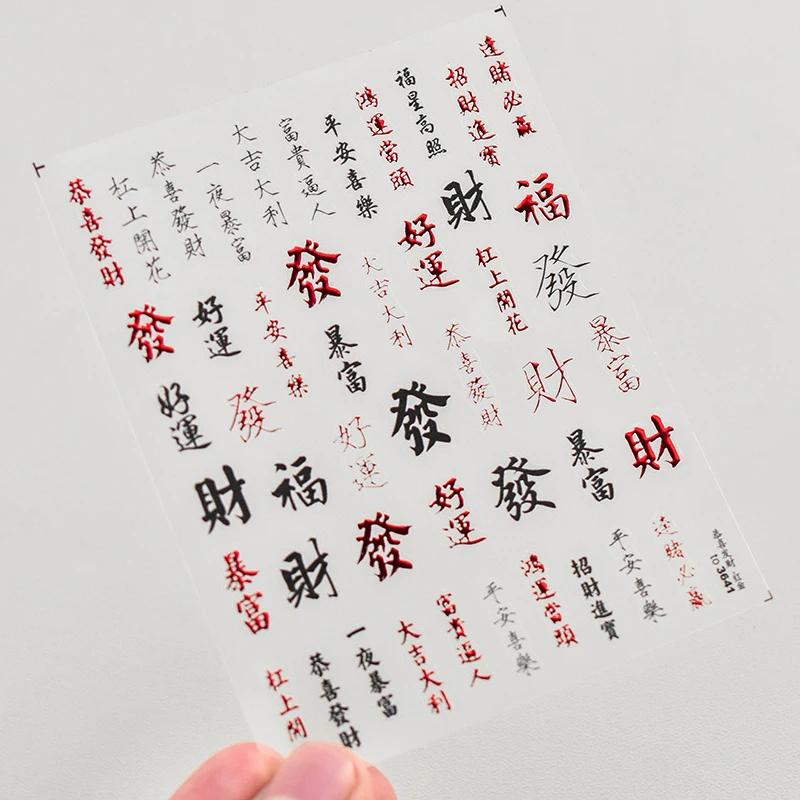 恭喜發財
杠上開花
恭喜發財
一夜暴富
大吉大利
富貴逼人
平安喜樂
鴻運當頭
福星高照
招財進寶
逢賭必贏
發
好運
平安喜樂
發
大吉大利
好運
財
福
好運
發
暴富
恭喜發財
杠上開花
發
財
福
好運
發
財
暴富
暴富
財
發
好運
發
暴富
財
杠上開
恭喜發財
一夜暴富
大吉大利
富貴逼人
平安喜樂
鴻運當頭
招財進寶
平安喜樂
逢賭必贏
恭喜发财 红金
TO 3641